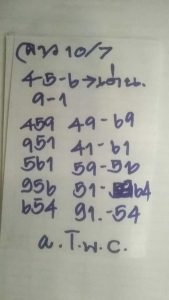 10/7
4-5-6→เด่น.
9-1
459 49-69
951 41-61
561 59-56
956 51-64
654 91.-54
a.T.w.c.